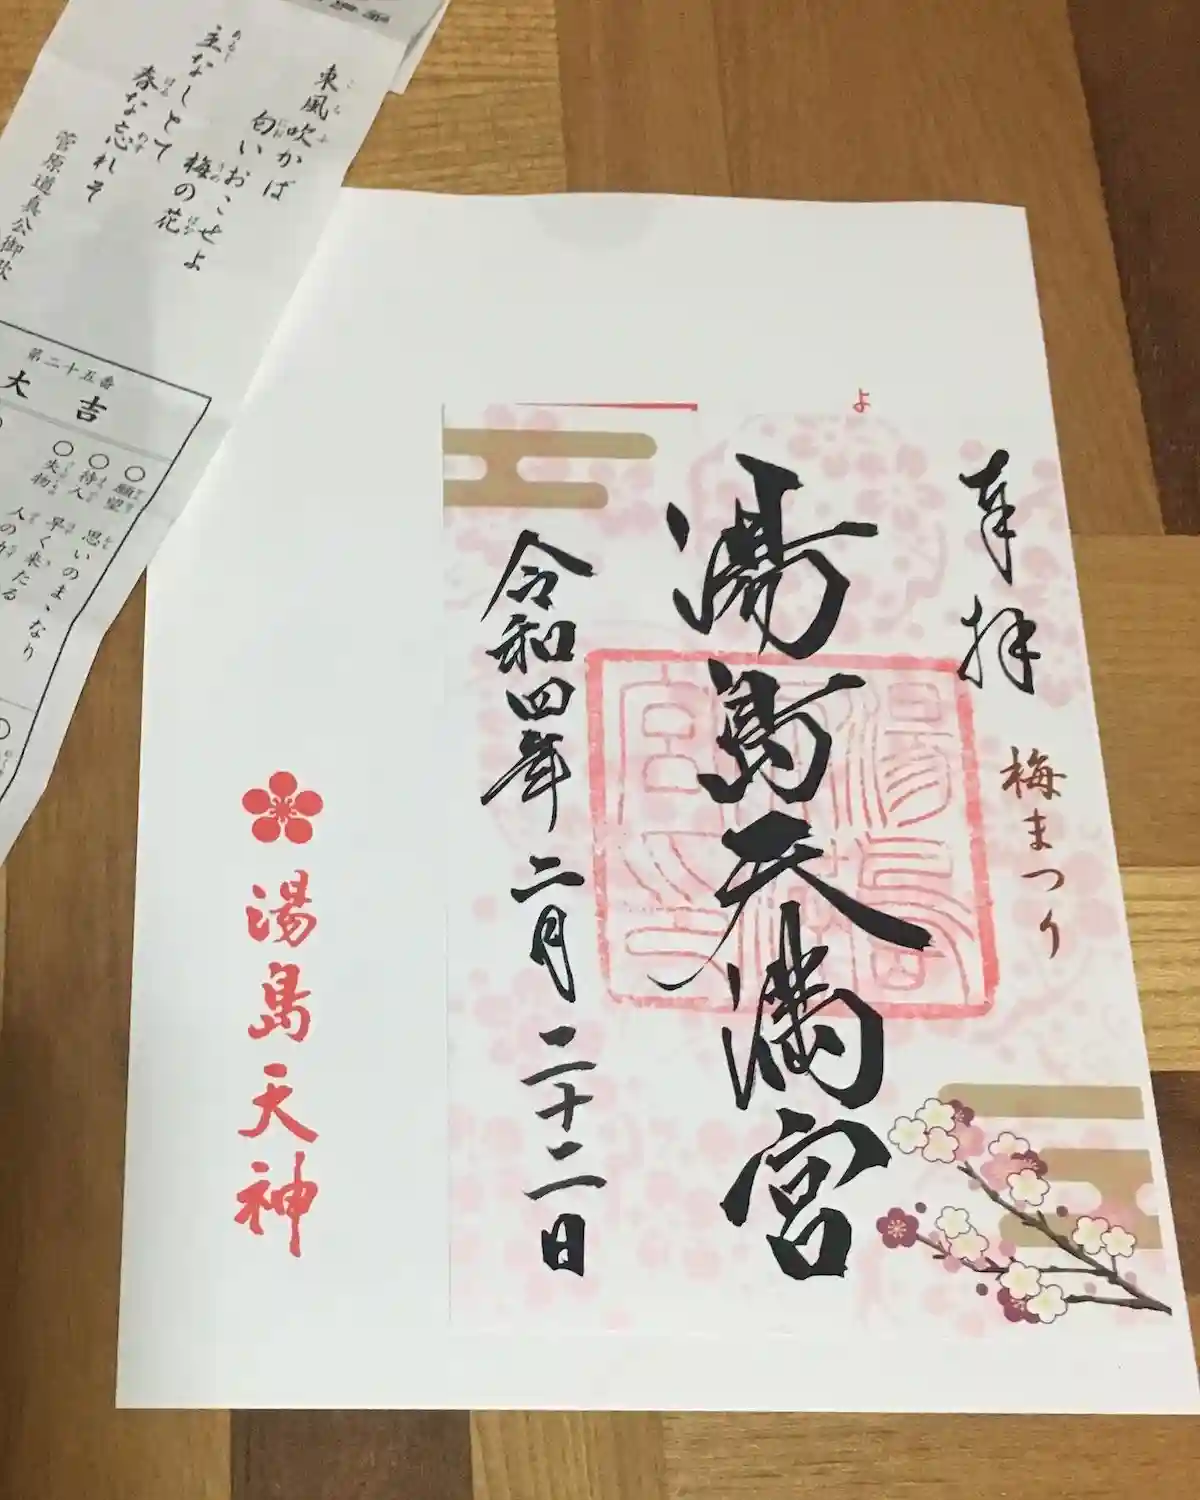 奉拝
梅まつり
湯島天満宮
令和四年 二月 二十二日
よ
湯島天神
東風吹かば
匂いおこせよ
梅の花
主なしとて
春な忘れそ
菅原道真公御歌
第二十五番
大吉
○願望 思いのまゝなり
○待人 早く来たる
○失物 人の